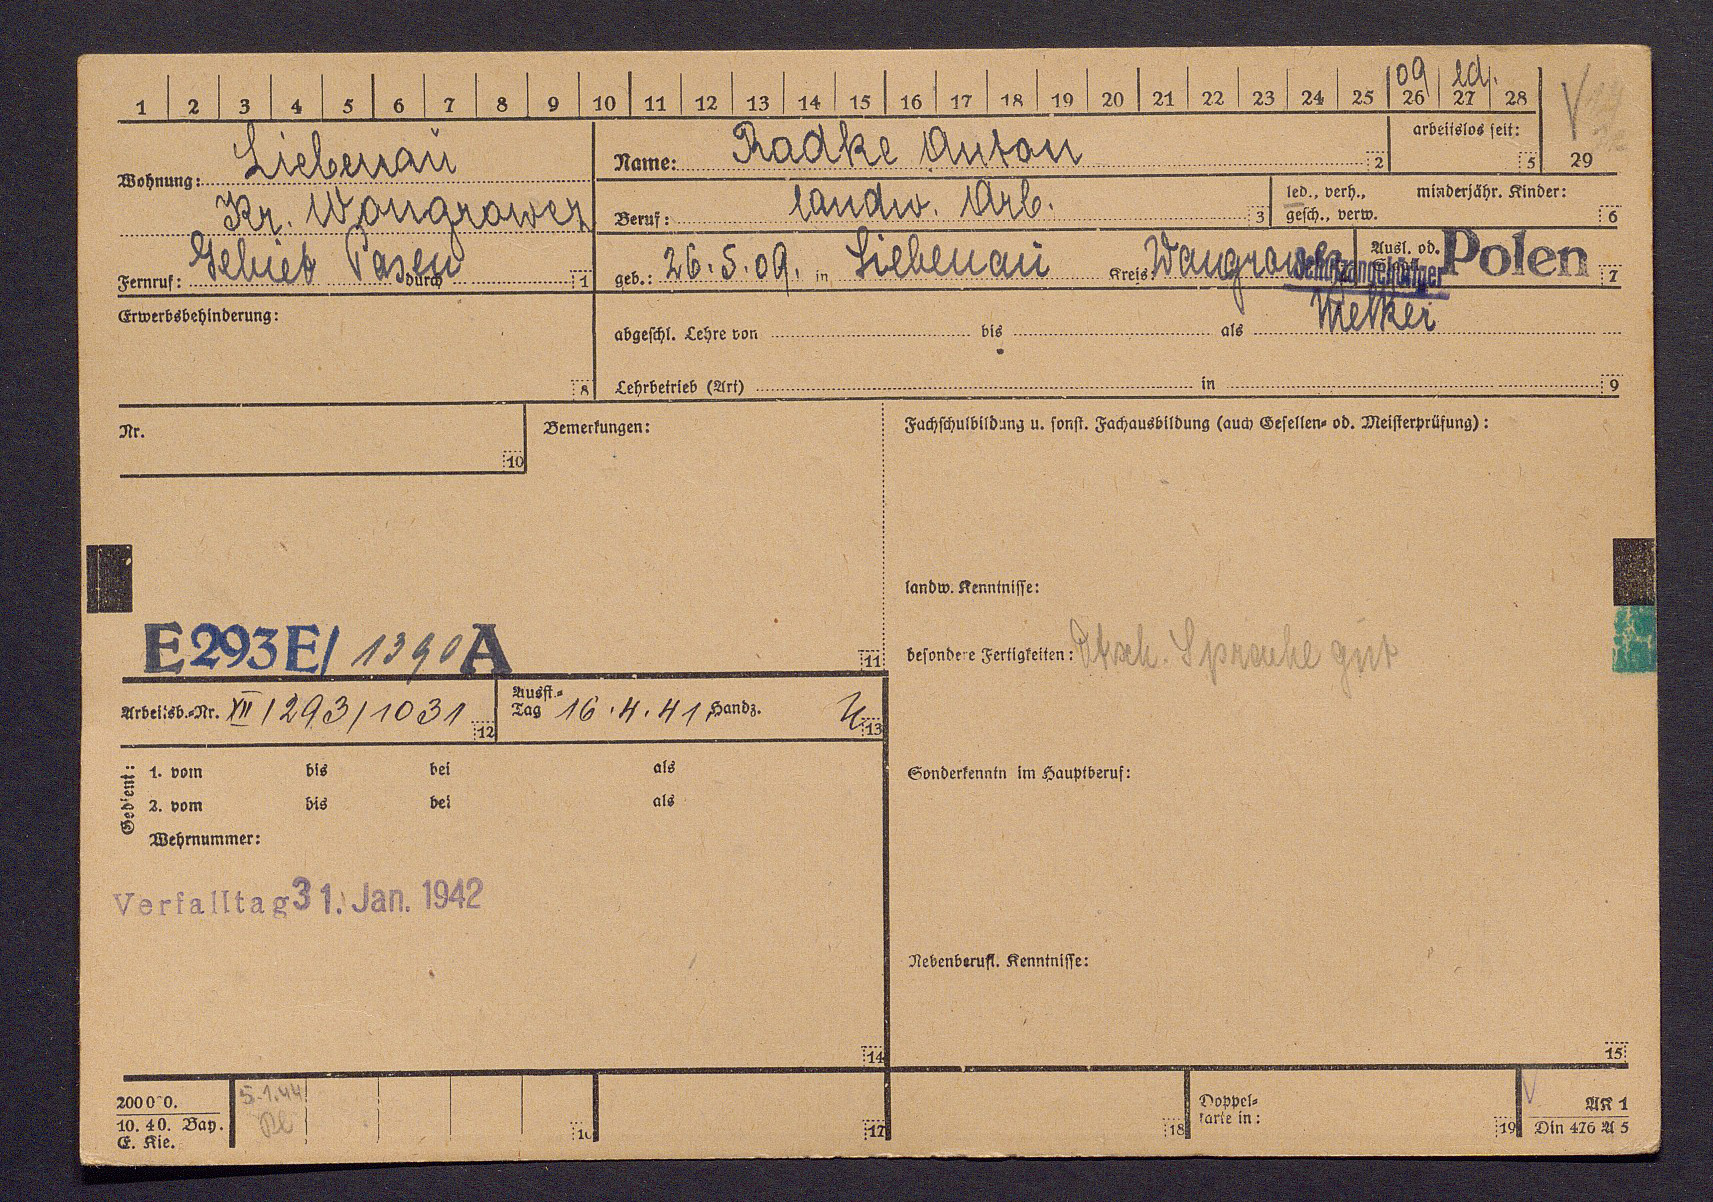 1 2 3 4 5 6 7 8 9 10 11 12 13 14 15 16 17 18 19 20 21 22 23 24 25 26 27 28
09 led.
arbeitslos seit: 5
29
Wohnung: Liebenau
Kr. Wongrowez
Gebiet Posen
Fernruf: durch 1
Name: Radke Anton 2
Beruf: landw. Arb. 3
led., verh., gesch., verw.
minderjähr. Kinder: 6
geb.: 26.5.09. in Liebenau Kreis
Ausl. od.
Polen 7
Schutzangehöriger
Melker
Erwerbsbehinderung: 8
abgeschl. Lehre von bis als
Lehrbetrieb (Art) in 9
Nr. 10
Bemerkungen:
Fachschulbildung u. sonst. Fachausbildung (auch Gesellen- od. Meisterprüfung):
landw. Kenntnisse:
E 293 E/ 1390 A 11
besondere Fertigkeiten: Dtsch. Sprache gut
Arbeitsb.-Nr. XII/293/1031 12
Ausst.-Tag 16.4.41 Handz. 13
Gedient:
1. vom bis bei als
2. vom bis bei als
Wehrnummer:
Sonderkenntn im Hauptberuf:
Verfalltag 31. Jan. 1942
Nebenberufl. Kenntnisse:
14
15
200000.
10. 40. Bay.
E. Kie.
5.1.44
16
17
18
Doppel-
karte in: 19
AK 1
Din 476 A 5